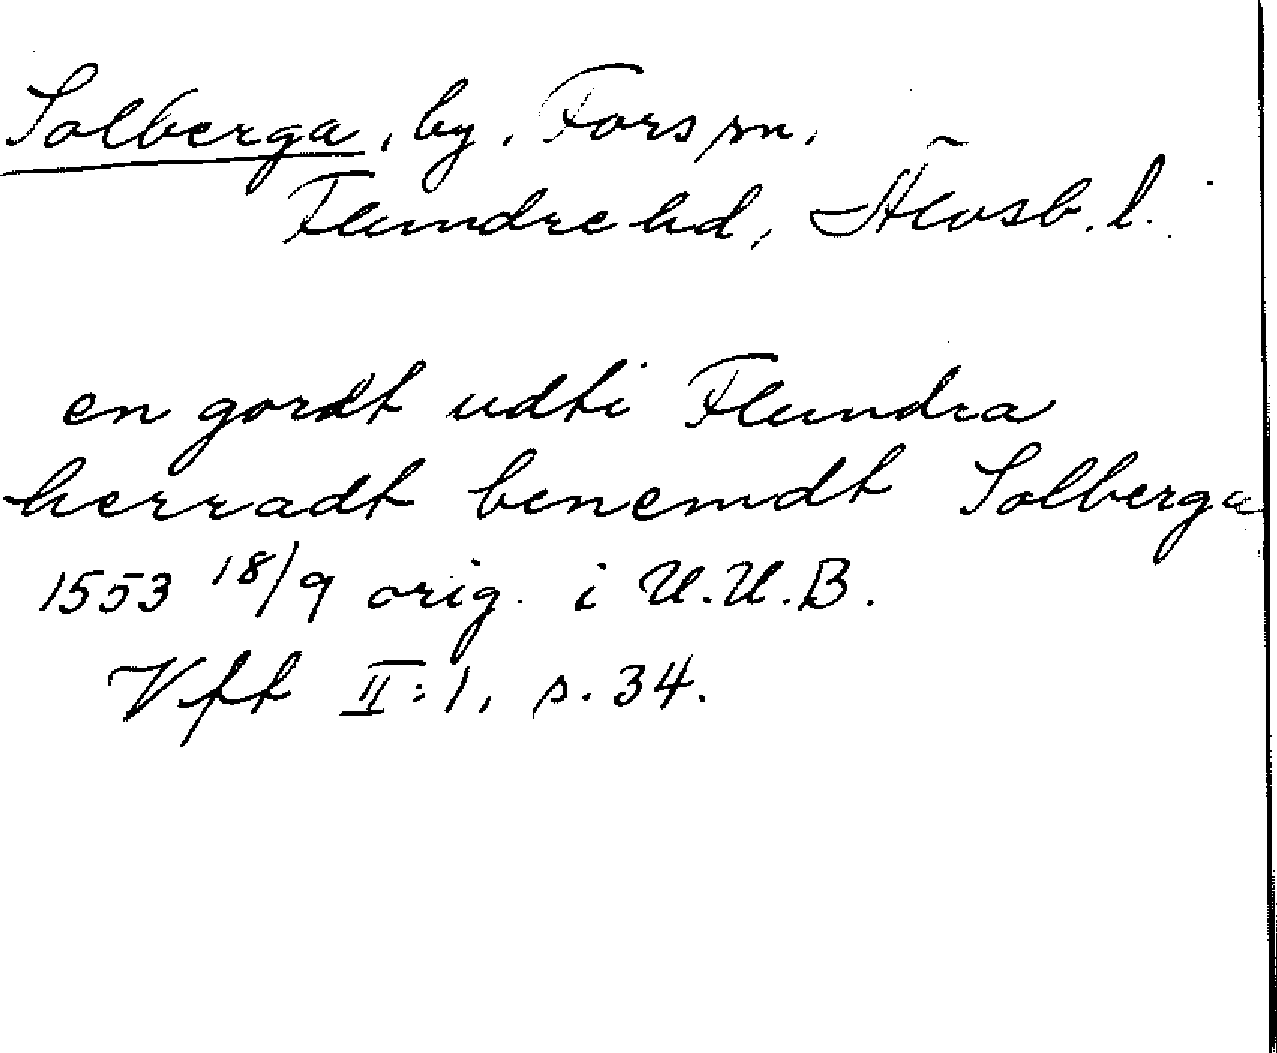 Solberga, by, Fors sn.
Flundre hd, Älvsb. l.
en gordt udti Flundra
herradt benemdt Solberga
1553 18/9 orig. i U.U.B.
Vfft II:1, s. 34.